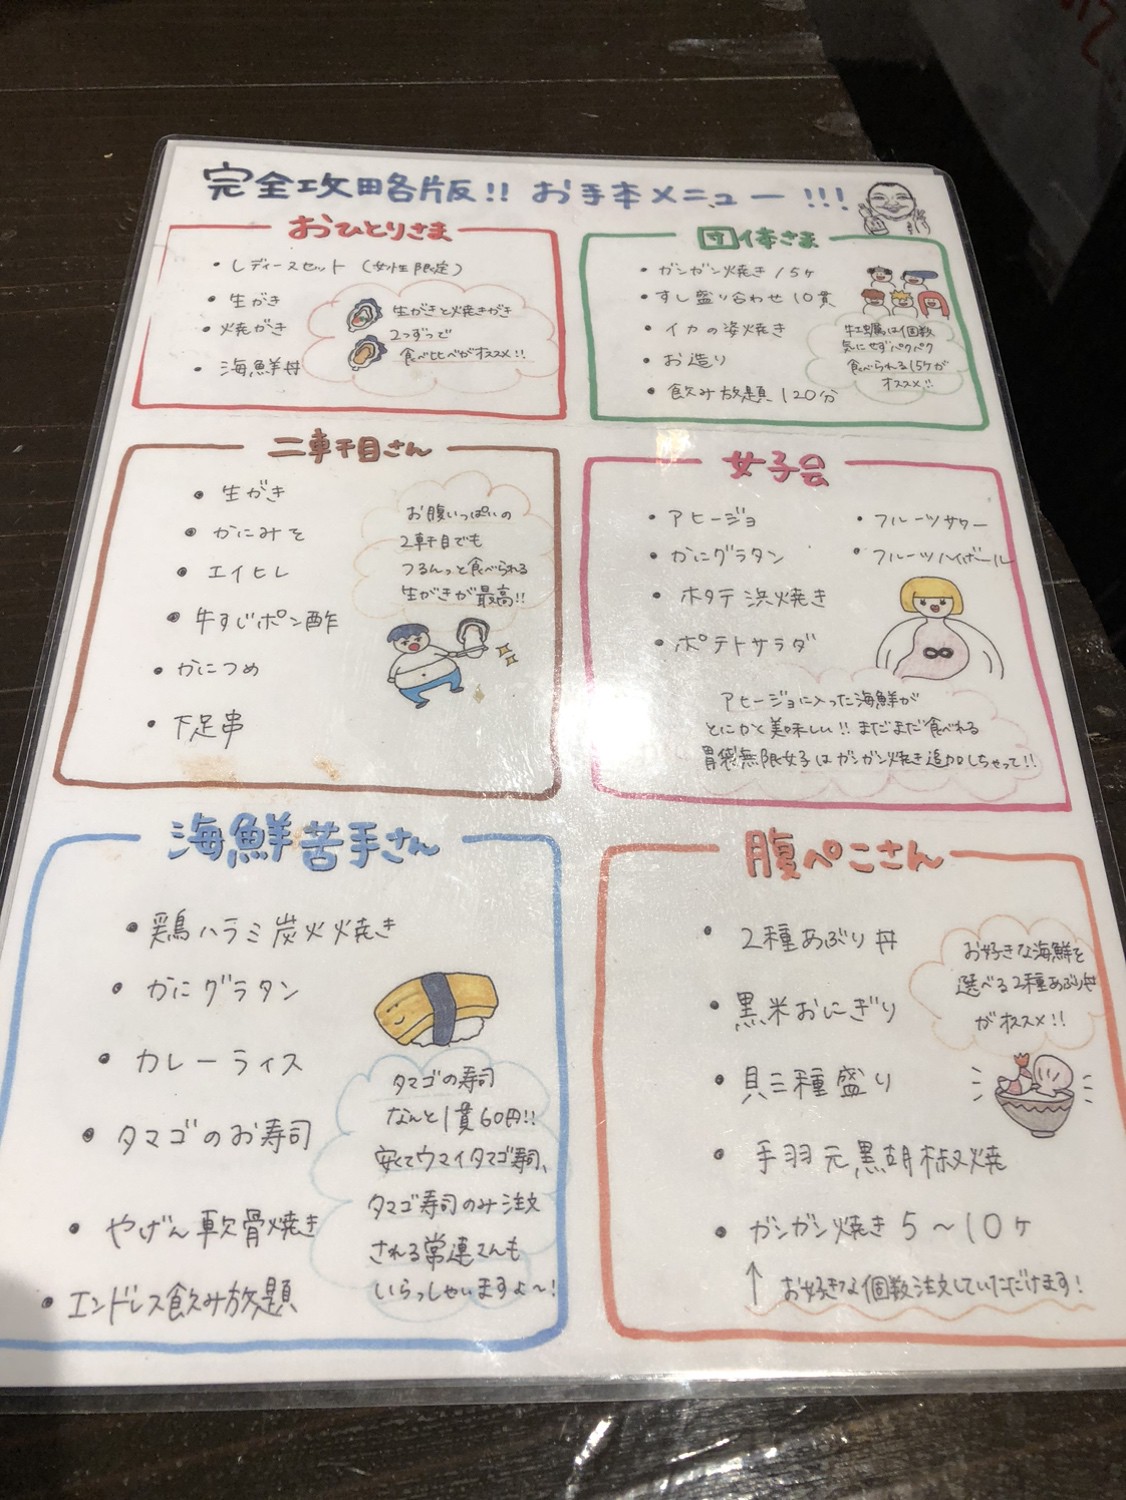 完全攻略各版!! お手本メニュー!!!
おひとりさま
・レディースセット (女性限定)
・生がき
・焼がき
・海鮮丼
生がきと焼きがき
2つずつで
食べ比べがオススメ!!
団体さま
・ガンガン焼き15ヶ
・すし盛り合わせ10貫
・イカの姿焼き
・お造り
・飲み放題120分
牡蠣は個数
気にせずパクパク
食べられる15ケが
オススメ!!
二軒目さん
・生がき
・かにみそ
・エイヒレ
・牛すじポン酢
・かにつめ
・下足串
お腹いっぱいの
2軒目でも
つるんっと食べられる
生がきが最高!!
女子会
・アヒージョ
・かにグラタン
・ホタテ浜焼き
・ポテトサラダ
・フルーツサワー
・フルーツハイボール
アヒージョに入った海鮮が
とにかく美味しい!! まだまだ食べれる
胃袋無限女子はガンガン焼き追加しちゃって!!
海鮮苦手さん
・鶏ハラミ炭火焼き
・かにグラタン
・カレーライス
・タマゴのお寿司
・やげん軟骨焼き
・エンドレス飲み放題
タマゴの寿司
なんと1貫60円!!
安くてウマイタマゴ寿司、
タマゴ寿司のみ注文
される常連さんも
いらっしゃいますよ〜!
腹ぺこさん
・2種あぶり丼
・黒米おにぎり
・貝三種盛り
・手羽元黒胡椒焼
・ガンガン焼き5〜10ヶ
↑ お好きな個数注文していただけます!
お好きな海鮮を
選べる2種あぶり丼
がオススメ!!